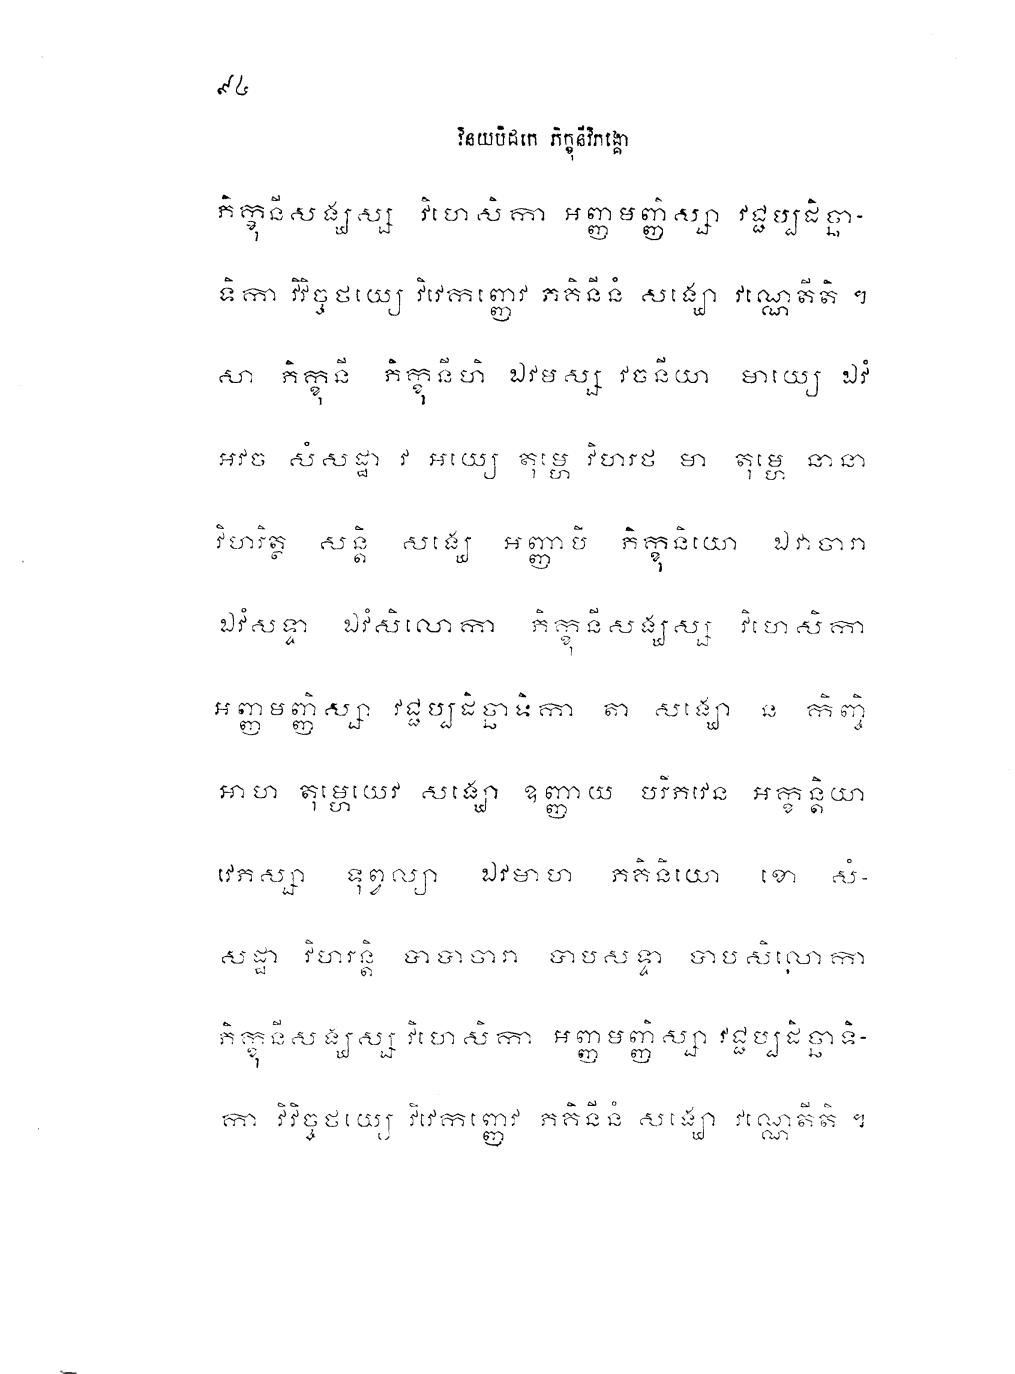 ៩៤
វិនយបិដកេ ភិក្ខុនីវិភង្គោ
ភិក្ខុនីសង្ឃស្ស វិហេសិកា អញ្ញមញ្ញិស្សា វជ្ជប្បដិច្ឆា-
ទិកា វិវិច្ចថយ្យេ វិវេកញ្ញេវ ភគិនីនំ សង្ឃោ វណ្ណេតីតិ ។
សា ភិក្ខុនី ភិក្ខុនីហិ ឯវមស្ស វចនីយា មាយ្យេ ឯវំ
អវច សំសដ្ឋា វ អយ្យេ តុម្ហេ វិហរថ មា តុម្ហេ នានា
វិហរិត្ថ សន្តិ សង្ឃេ អញ្ញាបិ ភិក្ខុនិយោ ឯវាចារា
ឯវំសទ្ទា ឯវំសិលោកា ភិក្ខុនីសង្ឃស្ស វិហេសិកា
អញ្ញមញ្ញិស្សា វជ្ជប្បដិច្ឆាទិកា តា សង្ឃោ ន កិញ្ចិ
អាហ តុម្ហេយេវ សង្ឃោ ឧញ្ញាយ បរិភវេន អក្ខន្តិយា
វេភស្សា ទុព្វល្យា ឯវមាហ ភគិនិយោ ខោ សំ-
សដ្ឋា វិហរន្តិ បាបាចារា បាបសទ្ទា បាបសិលោកា
ភិក្ខុនីសង្ឃស្ស វិហេសិកា អញ្ញមញ្ញិស្សា វជ្ជប្បដិច្ឆាទិ-
កា វិវិច្ចថយ្យេ វិវេកញ្ញេវ ភគិនីនំ សង្ឃោ វណ្ណេតីតិ ។